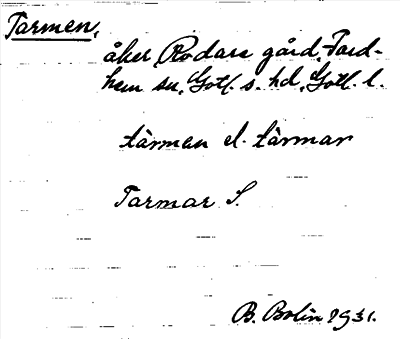 Tarmen,
åker, Rodars gård, Fard-
hem sn, Gotl. s. hd, Gotl. l.
tarmen el. tarmar
Tarmar S.
B. Bolin 1931.